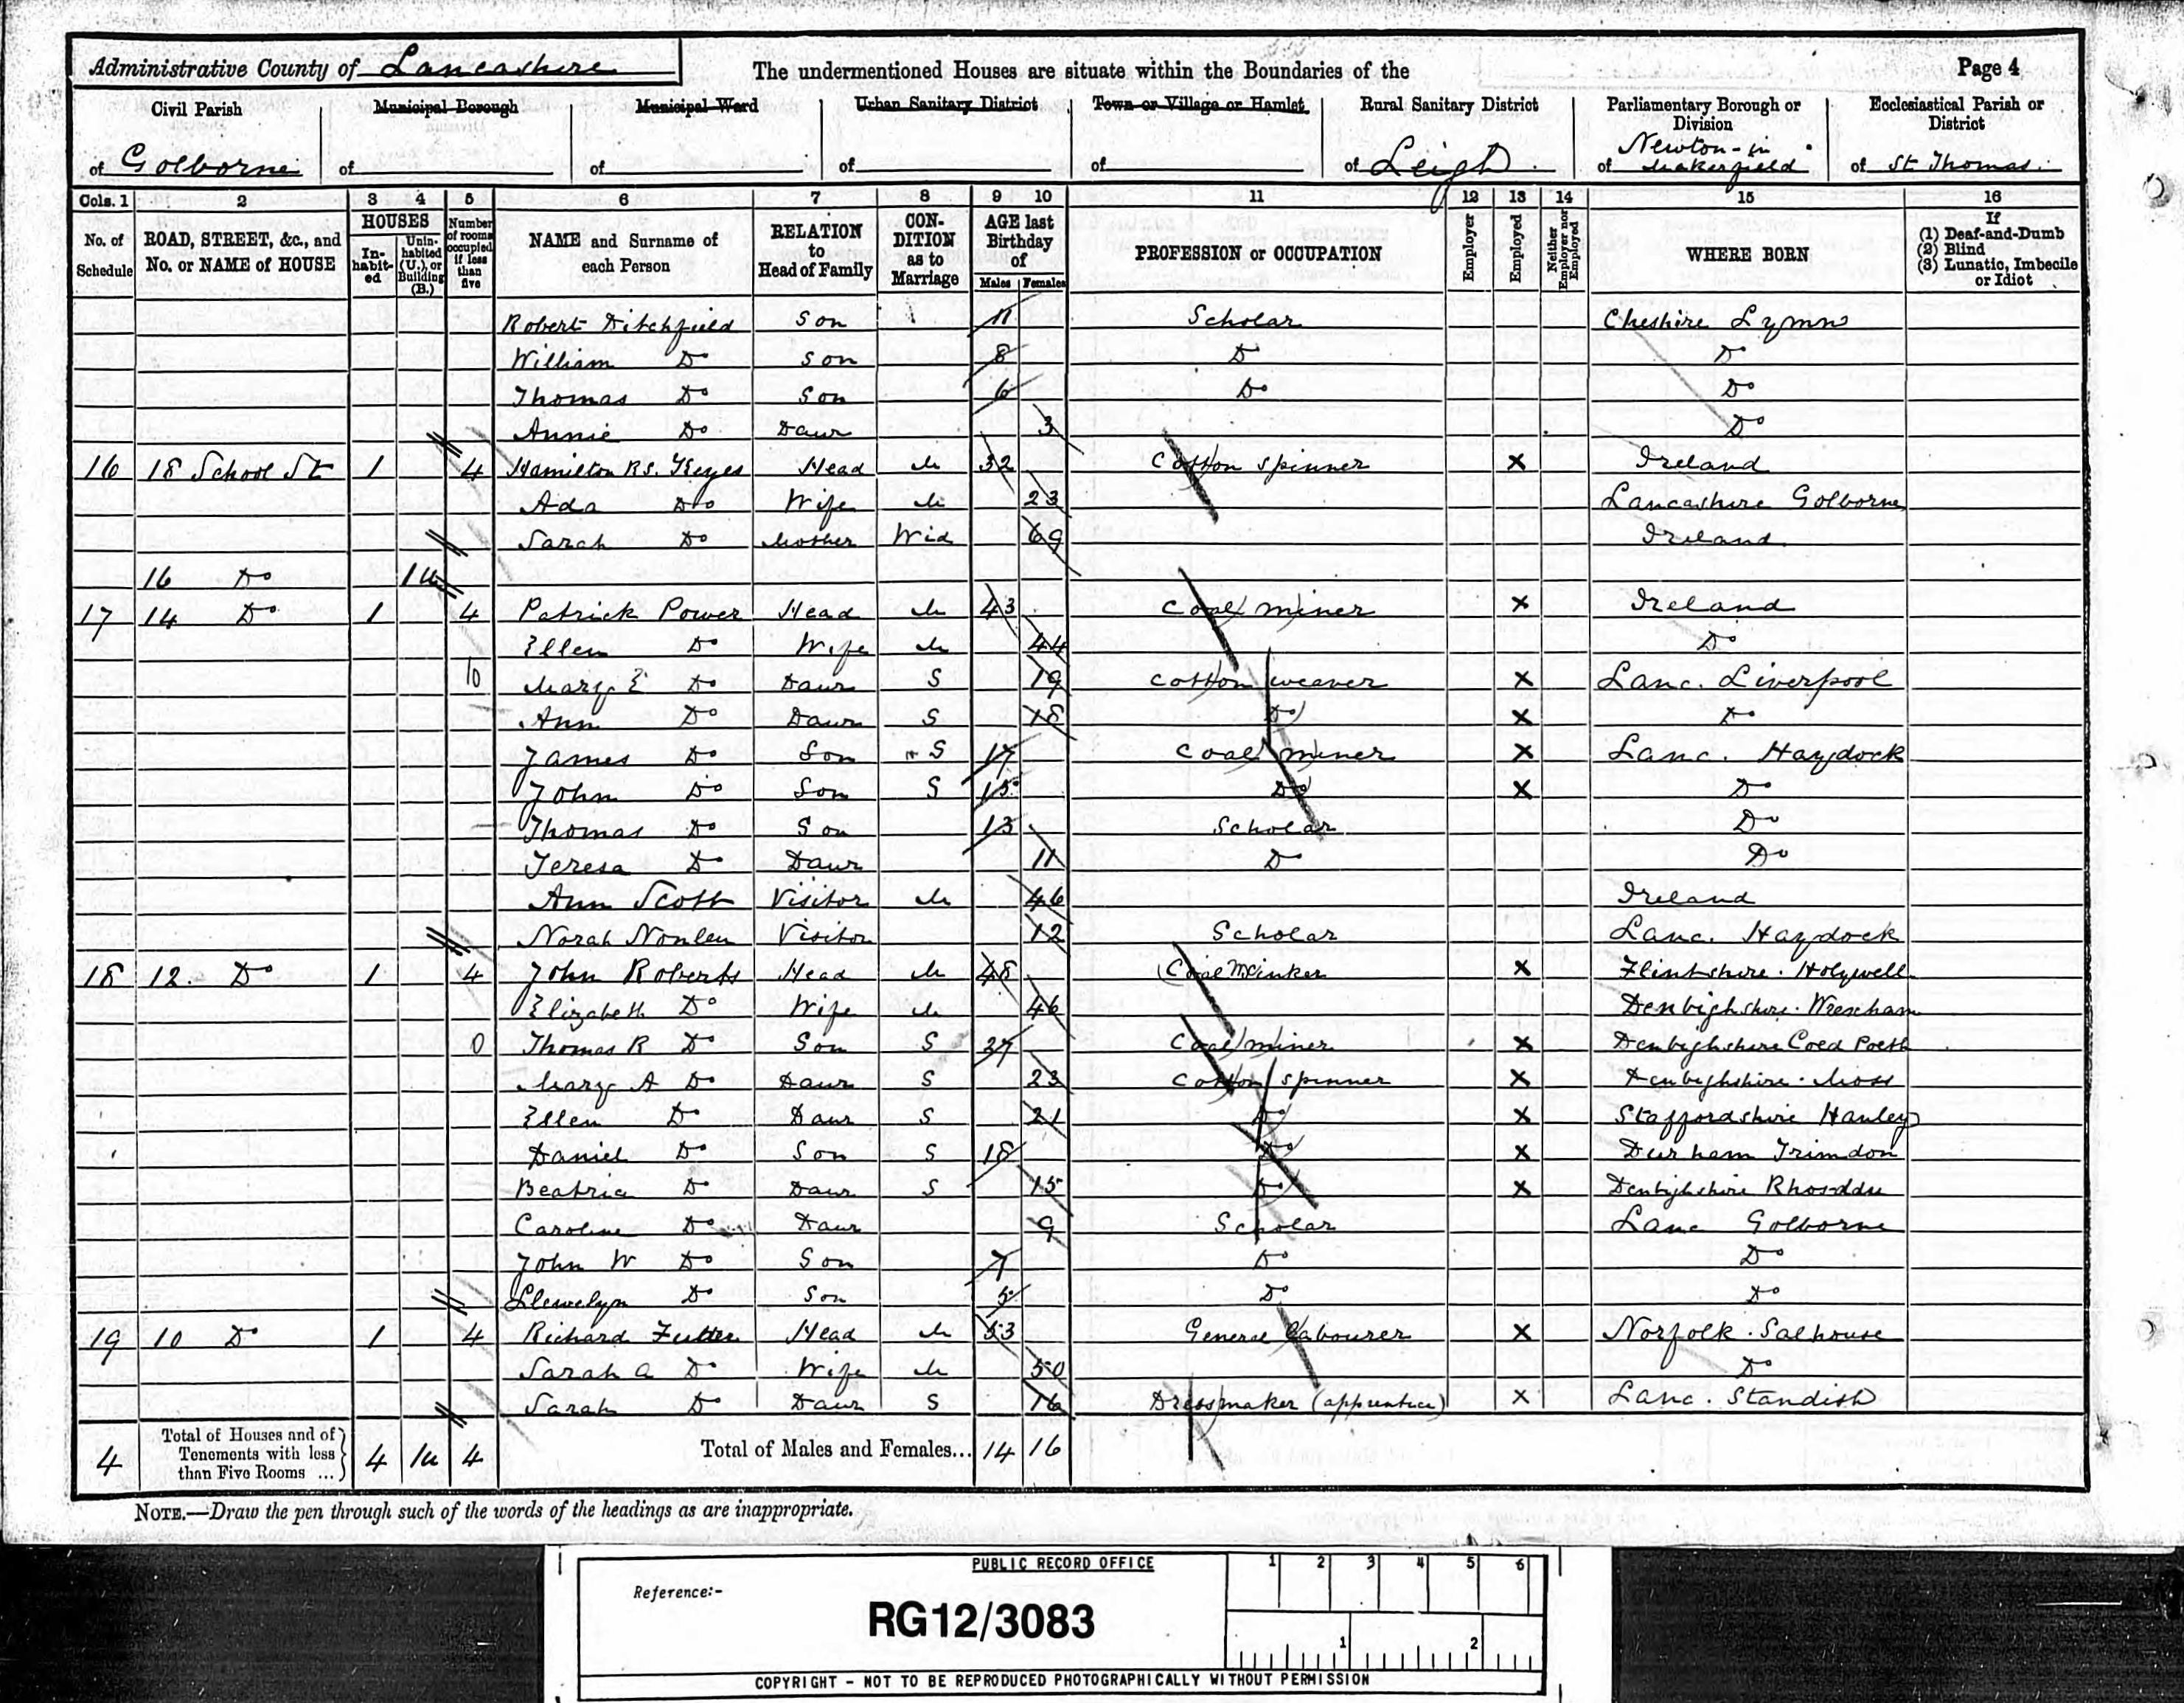 Administrative County of Lancashire The undermentioned Houses are situate within the Boundaries of the Page 4
Civil Parish Municipal Borough Municipal Ward Urban Sanitary District Town or Village or Hamlet Rural Sanitary District Parliamentary Borough or Division Ecclesiastical Parish or District
of Golborne of of of of of Leigh of Newton-in Makerfield of St Thomas.
Cols. 1 2 3 4 5 6 7 8 9 10 11 12 13 14 15 16
No. of Schedule ROAD, STREET, &c., and No. or NAME of HOUSE HOUSES In-habit-ed Unin-habited (U.), or Building (B.) Number of rooms occupied if less than five NAME and Surname of each Person RELATION to Head of Family CON-DITION as to Marriage AGE last Birthday of Males Females PROFESSION or OCCUPATION Employer Employed Neither Employer nor Employed WHERE BORN If (1) Deaf-and-Dumb (2) Blind (3) Lunatic, Imbecile or Idiot
Robert Ditchfield Son 11 Scholar Cheshire Lymm
William Do Son 8 Do Do
Thomas Do Son 6 Do Do
Annie Do Daur 3 Do
16 18 School St 1 4 Hamilton R.S. Keyes Head M 32 Cotton Spinner X Ireland
Ada Do Wife M 23 Lancashire Golborne
Sarah Do Mother Wid 69 Ireland
16 Do 1u
17 14 Do 1 4 Patrick Power Head M 43 Coal miner X Ireland
Ellen Do Wife M 44 Do
10 Mary E Do Daur S 19 Cotton weaver X Lanc. Liverpool
Ann Do Daur S 18 Do X Do
James Do Son S 17 Coal miner X Lanc. Haydock
John Do Son S 15 Do X Do
Thomas Do Son 13 Scholar Do
Teresa Do Daur 11 Do Do
Ann Scott Visitor M 46 Ireland
Norah Visitor 12 Scholar Lanc. Haydock
18 12. Do 1 4 John Roberts Head M 48 Coal X Flintshire. Holywell
Elizabeth Do Wife M 46 Denbighshire. Wrexham
0 Thomas R Do Son S 27 Coal miner X Denbighshire Coed Poeth
Mary A Do Daur S 23 Cotton spinner X Denbighshire. Moss
Ellen Do Daur S 21 Do X Staffordshire Hanley
Daniel Do Son S 18 Do X Durham Trimdon
Beatrice Do Daur S 15 Do X Denbighshire Rhos-ddu
Caroline Do Daur 9 Scholar Lanc Golborne
John W Do Son 7 Do Do
Llewelyn Do Son 5 Do Do
19 10 Do 1 4 Richard Futter Head M 53 General Labourer X Norfolk. Salhouse
Sarah A Do Wife M 50 Do
Sarah Do Daur S 16 Dressmaker (apprentice) X Lanc. Standish
4 Total of Houses and of Tenements with less than Five Rooms ... 4 1u 4 Total of Males and Females... 14 16
NOTE.—Draw the pen through such of the words of the headings as are inappropriate.
PUBLIC RECORD OFFICE 1 2 3 4 5 6
Reference:-
RG12/3083
1 2
COPYRIGHT - NOT TO BE REPRODUCED PHOTOGRAPHICALLY WITHOUT PERMISSION